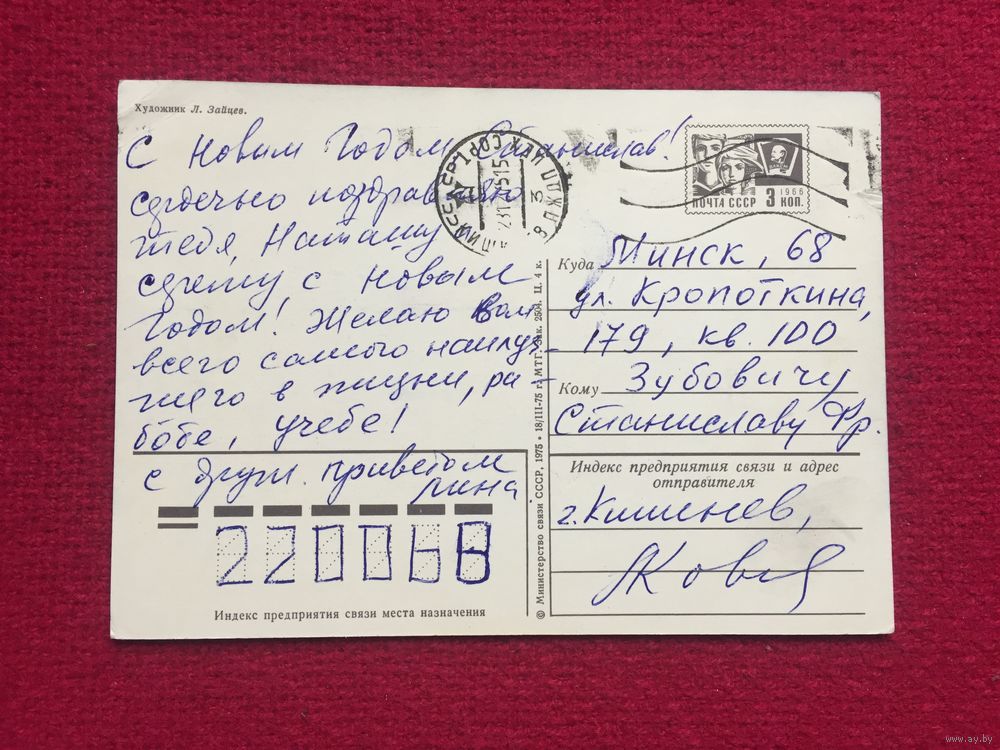 Художник Л. Зайцев.
С Новым Годом Станислав!
сердечно поздравляю
тебя, Наташу
с Новым
Годом! Желаю Вам
всего самого наилуч-
шего в жизни, ра-
боте, учебе!
с друж. приветом
Мина
220068
Индекс предприятия связи места назначения
© Министерство связи СССР, 1975 • 18/III-75 г. МТГ. Зак. 2504. Ц. 4 к.
1966
ПОЧТА СССР 3 КОП.
Куда Минск, 68
ул. Кропоткина,
179, кв. 100
Кому Зубовичу
Станиславу Фр.
Индекс предприятия связи и адрес
отправителя
г. Кишинев,
www.ay.by